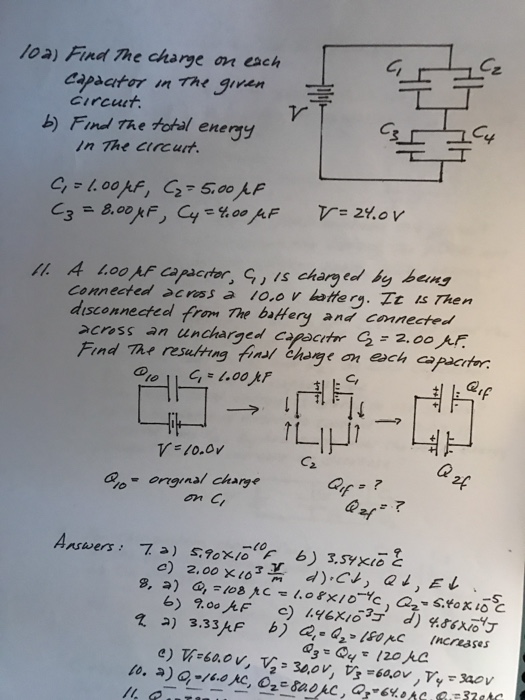 10 a) Find The charge on each
capacitor in The given
circuit.
b) Find The total energy
in The circuit.
C1 C2
V
C3 C4
C1 = 1.00 μF, C2 = 5.00 μF
C3 = 8.00 μF, C4 = 4.00 μF V = 24.0 V
11. A 1.00 μF capacitor, C1, is charged by being
connected across a 10.0 V battery. It is Then
disconnected from The battery and connected
across an uncharged capacitor C2 = 2.00 μF.
Find The resulting final charge on each capacitor.
Q10 C1 = 1.00 μF C1 Q1f
V = 10.0V C2 Q2f
Q10 = original charge
on C1
Q1f = ?
Q2f = ?
Answers: 7. a) 5.90×10^-10 F b) 3.54×10^-9 C
c) 2.00 ×10^3 V/m d) C↓, Q↓, E↓
8. a) Q1 = 108 μC = 1.08×10^-4 C, Q2 = 5.40×10^-5 C
b) 9.00 μF c) 1.46×10^-3 J d) 4.86×10^-4 J
increases
9. a) 3.33 μF b) Q1 = Q2 = 180 μC
Q3 = Q4 = 120 μC
c) V1 = 60.0 V, V2 = 30.0 V, V3 = 60.0 V, V4 = 30.0 V
10. a) Q1 = 16.0 μC, Q2 = 80.0 μC, Q3 = 64.0 μC, Q = 32.0 μC
11. Q